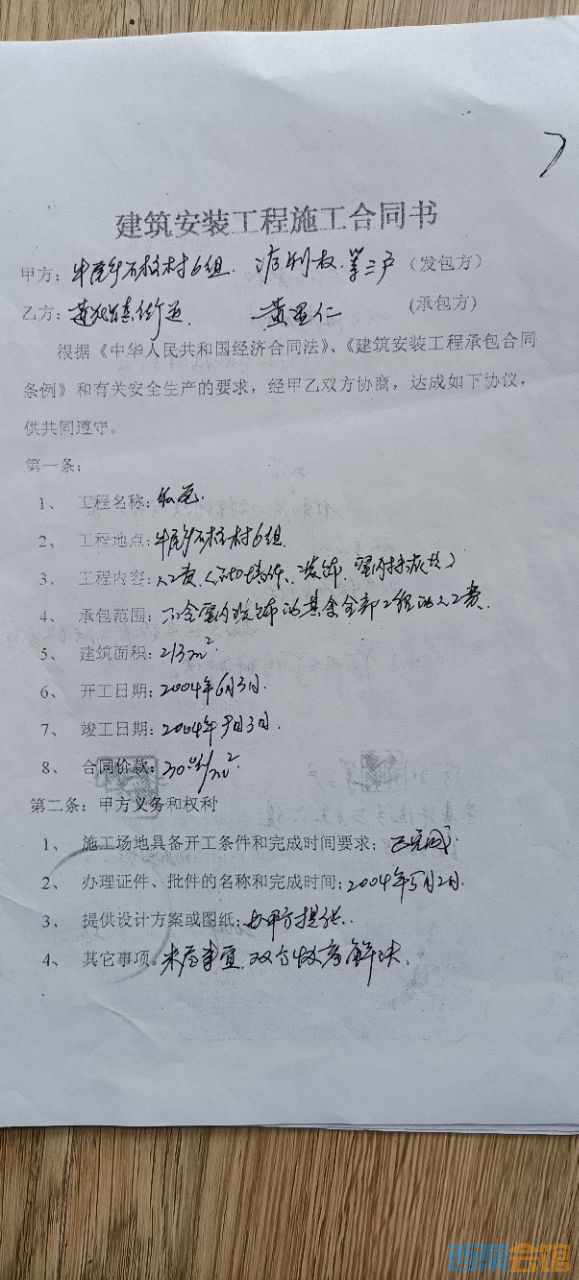 建筑安装工程施工合同书
甲方：石柱村6组 第三户 （发包方）
乙方：街道 黄 仁 (承包方)
根据《中华人民共和国经济合同法》、《建筑安装工程承包合同
条例》和有关安全生产的要求，经甲乙双方协商，达成如下协议，
供共同遵守。
第一条：
1、 工程名称：私宅
2、 工程地点：石柱村6组
3、 工程内容：人工费
4、 承包范围：不含室内装饰的其余全部工程的人工费
5、 建筑面积：213m²
6、 开工日期：2004年6月3日.
7、 竣工日期：2004年9月3日.
8、 合同价款：
第二条：甲方义务和权利
1、 施工场地具备开工条件和完成时间要求；已完成
2、 办理证件、批件的名称和完成时间；2004年5月2日.
3、 提供设计方案或图纸；由甲方提供.
4、 其它事项。未尽事宜.双方协商解决.
西祠会馆